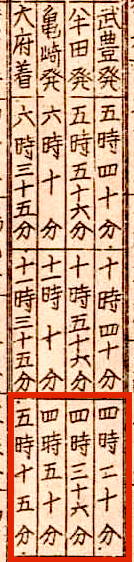 武豊発 五時四十分 十時四十分 四時二十分
半田発 五時五十六分 十時五十六分 四時三十六分
亀崎発 六時十分 十一時十分 四時五十分
大府着 六時三十五分 十一時三十五分 五時十五分